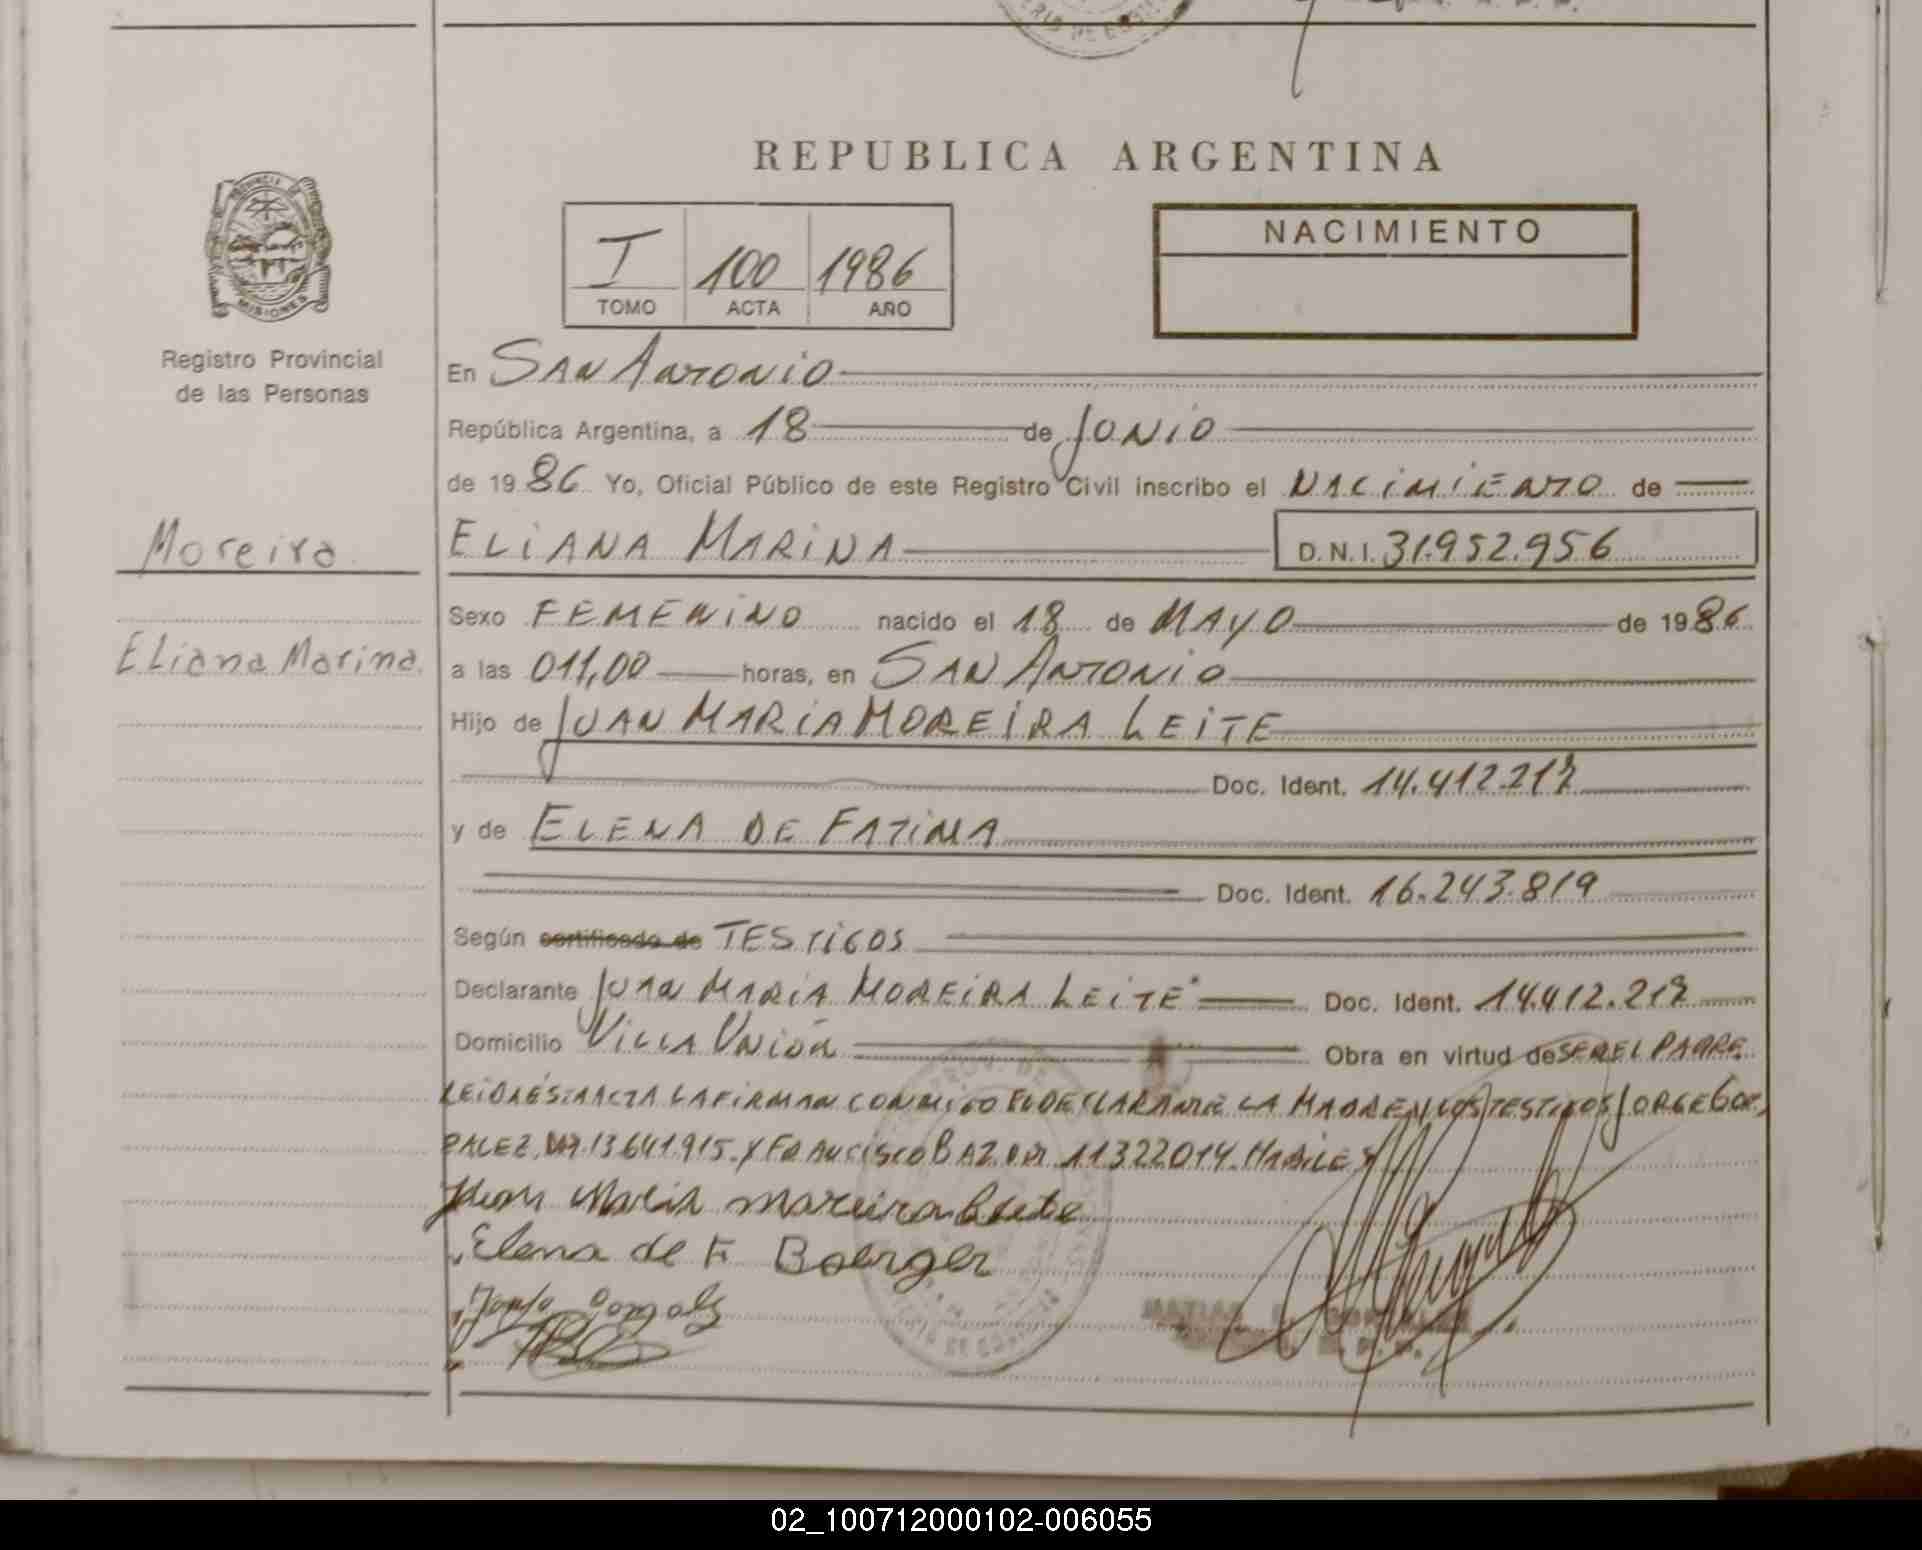 REPUBLICA ARGENTINA
PROVINCIA DE
MISIONES
Registro Provincial
de las Personas
I 100 1986
TOMO ACTA AÑO
NACIMIENTO
En SAN ANTONIO
República Argentina, a 18 de JUNIO
de 1986 Yo, Oficial Público de este Registro Civil inscribo el NACIMIENTO de
Moreira
ELIANA MARINA D.N.I. 31.952.956
Eliana Marina
Sexo FEMENINO nacido el 18 de MAYO de 1986
a las 011,00 horas, en SAN ANTONIO
Hijo de JUAN MARIA MOREIRA LEITE
Doc. Ident. 14.412.217
y de ELENA DE FATIMA
Doc. Ident. 16.243.819
Según certificado de TESTIGOS
Declarante JUAN MARIA MOREIRA LEITE Doc. Ident. 14.412.217
Domicilio VILLA UNIÓN Obra en virtud de SER EL PADRE
LEIDA ESTA ACTA LA FIRMAN CONMIGO EL DECLARANTE LA MADRE Y LOS TESTIGOS JORGE GON
ZALEZ 13.641.915. Y FRANCISCO BAZ 11322014. HABILES
Juan Maria moreira Leite
Elena de F Boerger
02_100712000102-006055